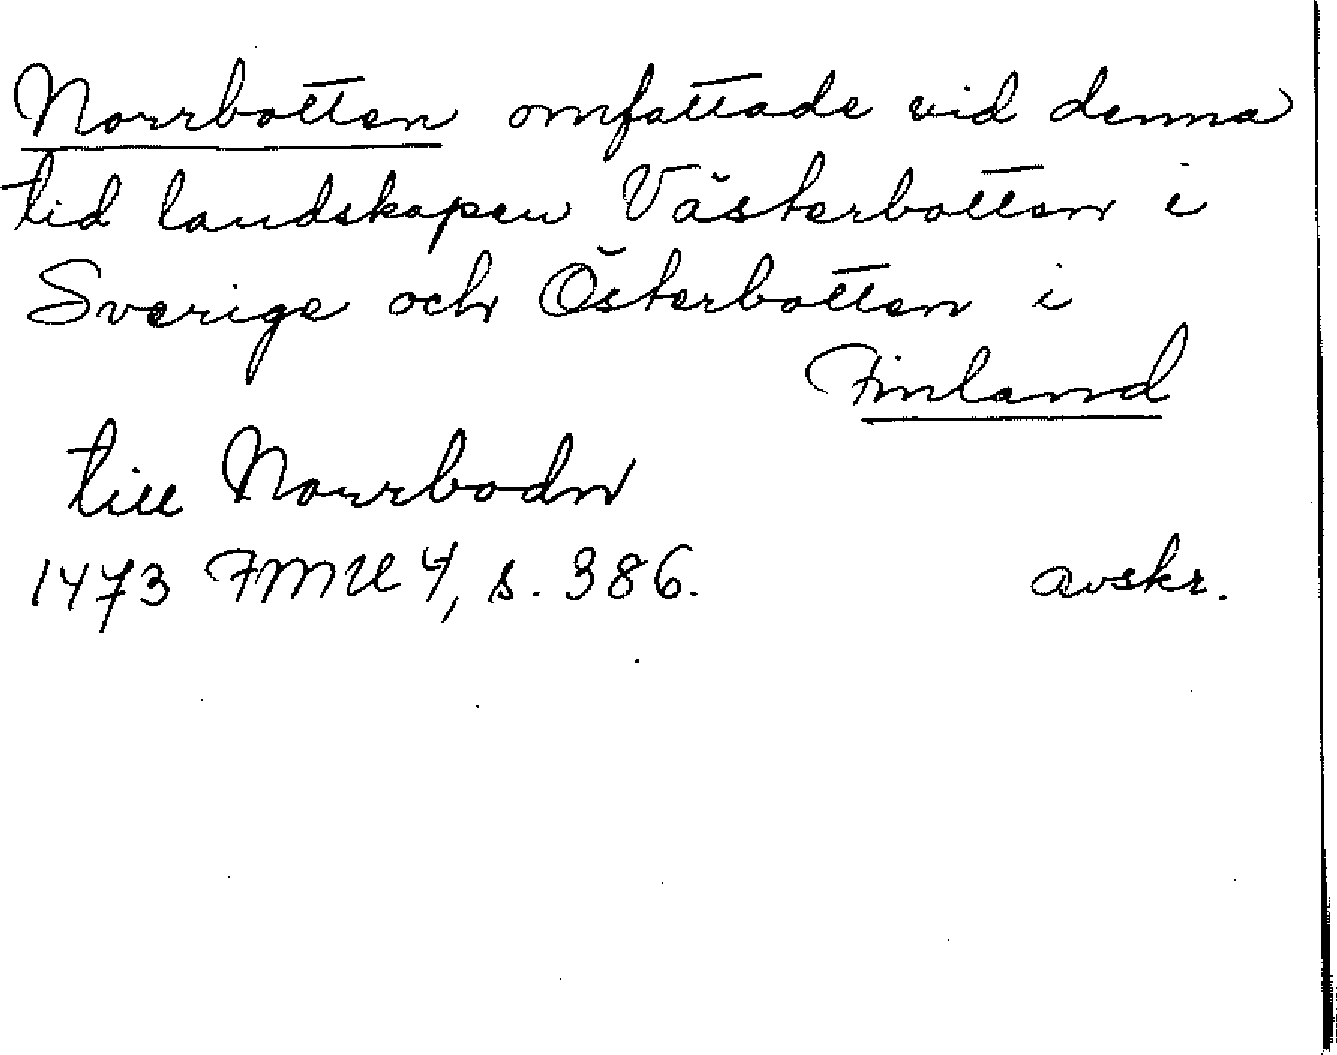 Norrbotten omfattade vid denna
tid landskapen Västerbotten i
Sverige och Österbotten i
Finland
till Norrbodn
1473 FMU 4, s. 386. avskr.